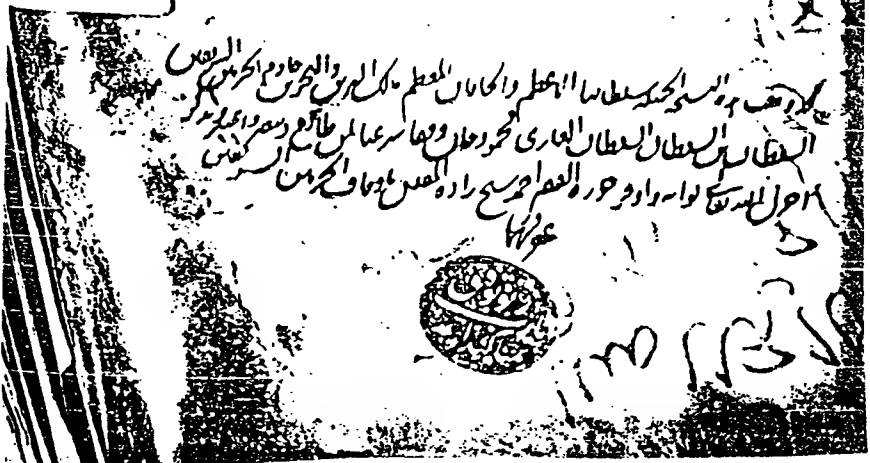 قد وقف هذه النسخة الجليلة سلطاننا الاعظم والخاقان المعظم مالك البرين والبحرين خادم الحرمين الشريفين
السلطان بن السلطان السلطان الغازى محمود خان وقفا شرعيا لمن طالع وتبصر واعتبر وتذكر
اجزل الله تعالى ثوابه واوفر حرره الفقير احمد شيخ زاده المفتش باوقاف الحرمين الشريفين
غفر لهما